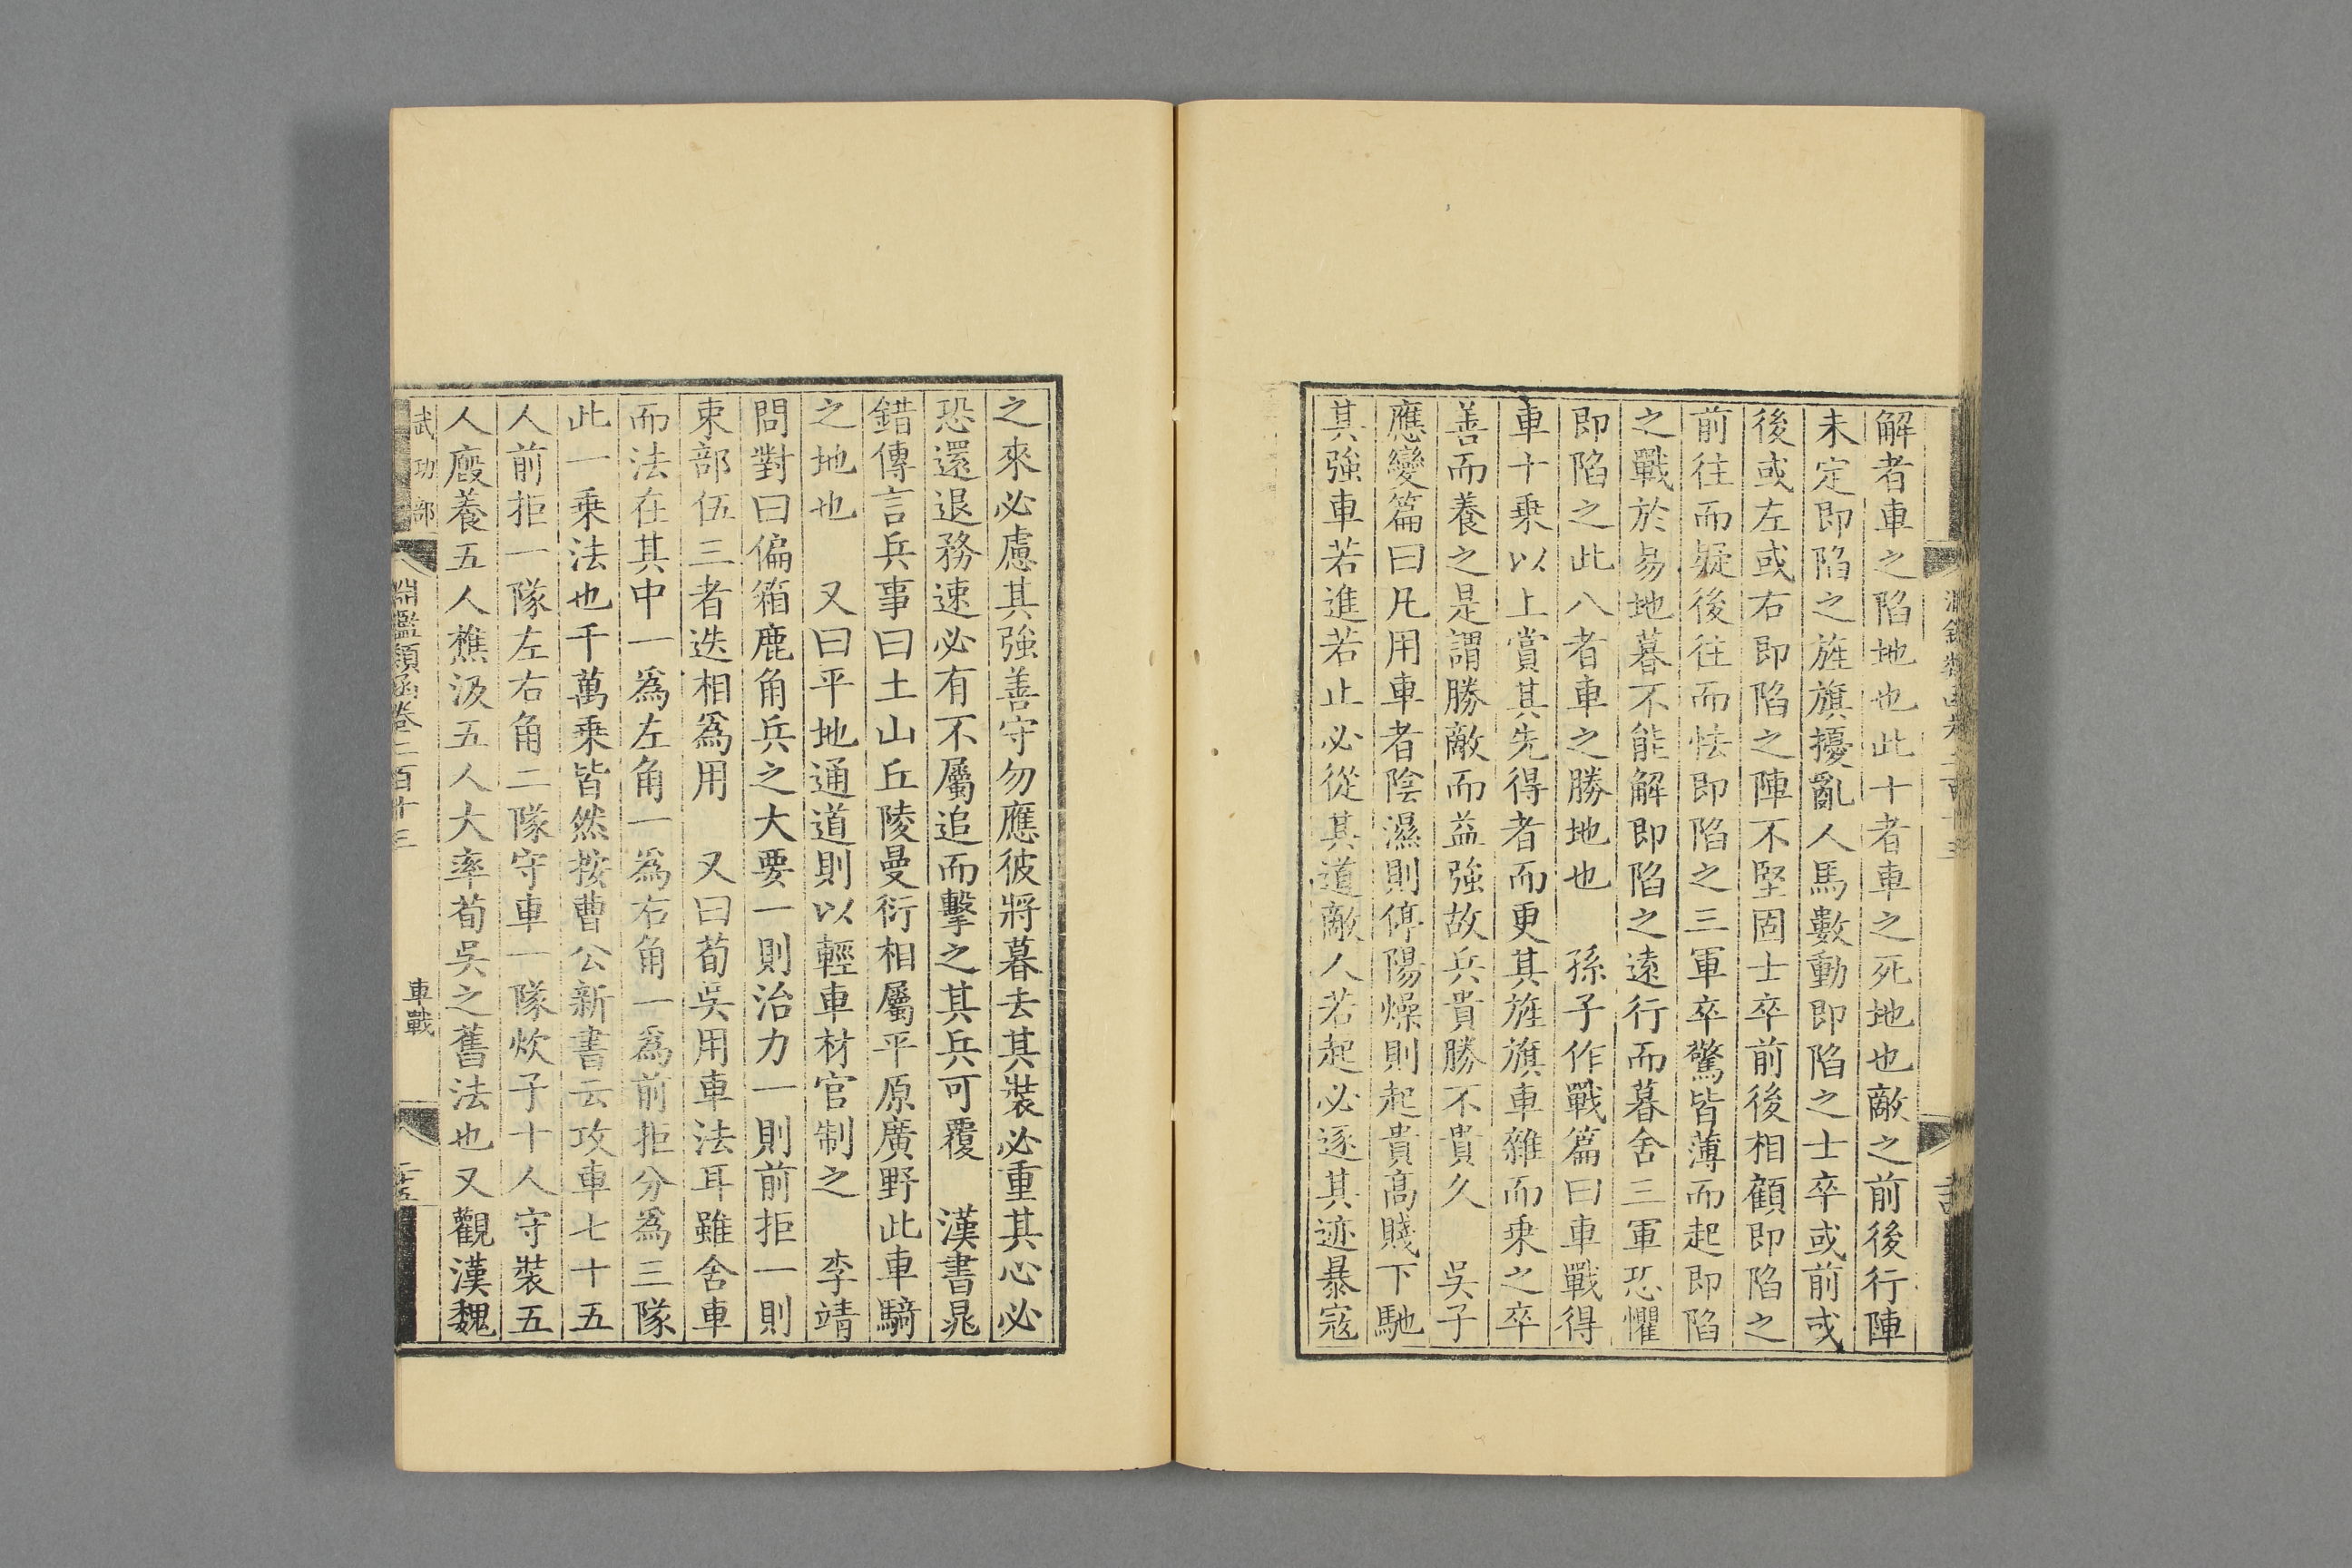 解者車之陷地也此十者車之死地也敵之前後行陣
未定即陷之旌旗擾亂人馬數動即陷之士卒或前或
後或左或右即陷之陣不堅固士卒前後相顧即陷之
前往而疑後往而怯即陷之三軍卒驚皆薄而起即陷
之戰於易地暮不能解即陷之遠行而暮舍三軍恐懼
即陷之此八者車之勝地也　孫子作戰篇曰車戰得
車十乘以上賞其先得者而更其旌旗車雜而乘之卒
善而養之是謂勝敵而益強故兵貴勝不貴久　吳子
應變篇曰凡用車者陰濕則停陽燥則起貴高賤下馳
其強車若進若止必從其道敵人若起必逐其迹暴寇
之來必慮其強善守勿應彼將暮去其裝必重其心必
恐還退務速必有不屬追而擊之其兵可覆　漢書晁
錯傳言兵事曰土山丘陵曼衍相屬平原廣野此車騎
之地也　又曰平地通道則以輕車材官制之　李靖
問對曰偏箱鹿角兵之大要一則治力一則前拒一則
束部伍三者迭相為用　又曰荀吳用車法耳雖舍車
而法在其中一為左角一為右角一為前拒分為三隊
此一乘法也千萬乘皆然按曹公新書云攻車七十五
人前拒一隊左右角二隊守車一隊炊子十人守裝五
人廄養五人樵汲五人大率荀吳之舊法也又觀漢魏
武功部
淵鑑類函卷二百十三
車戰
二十五